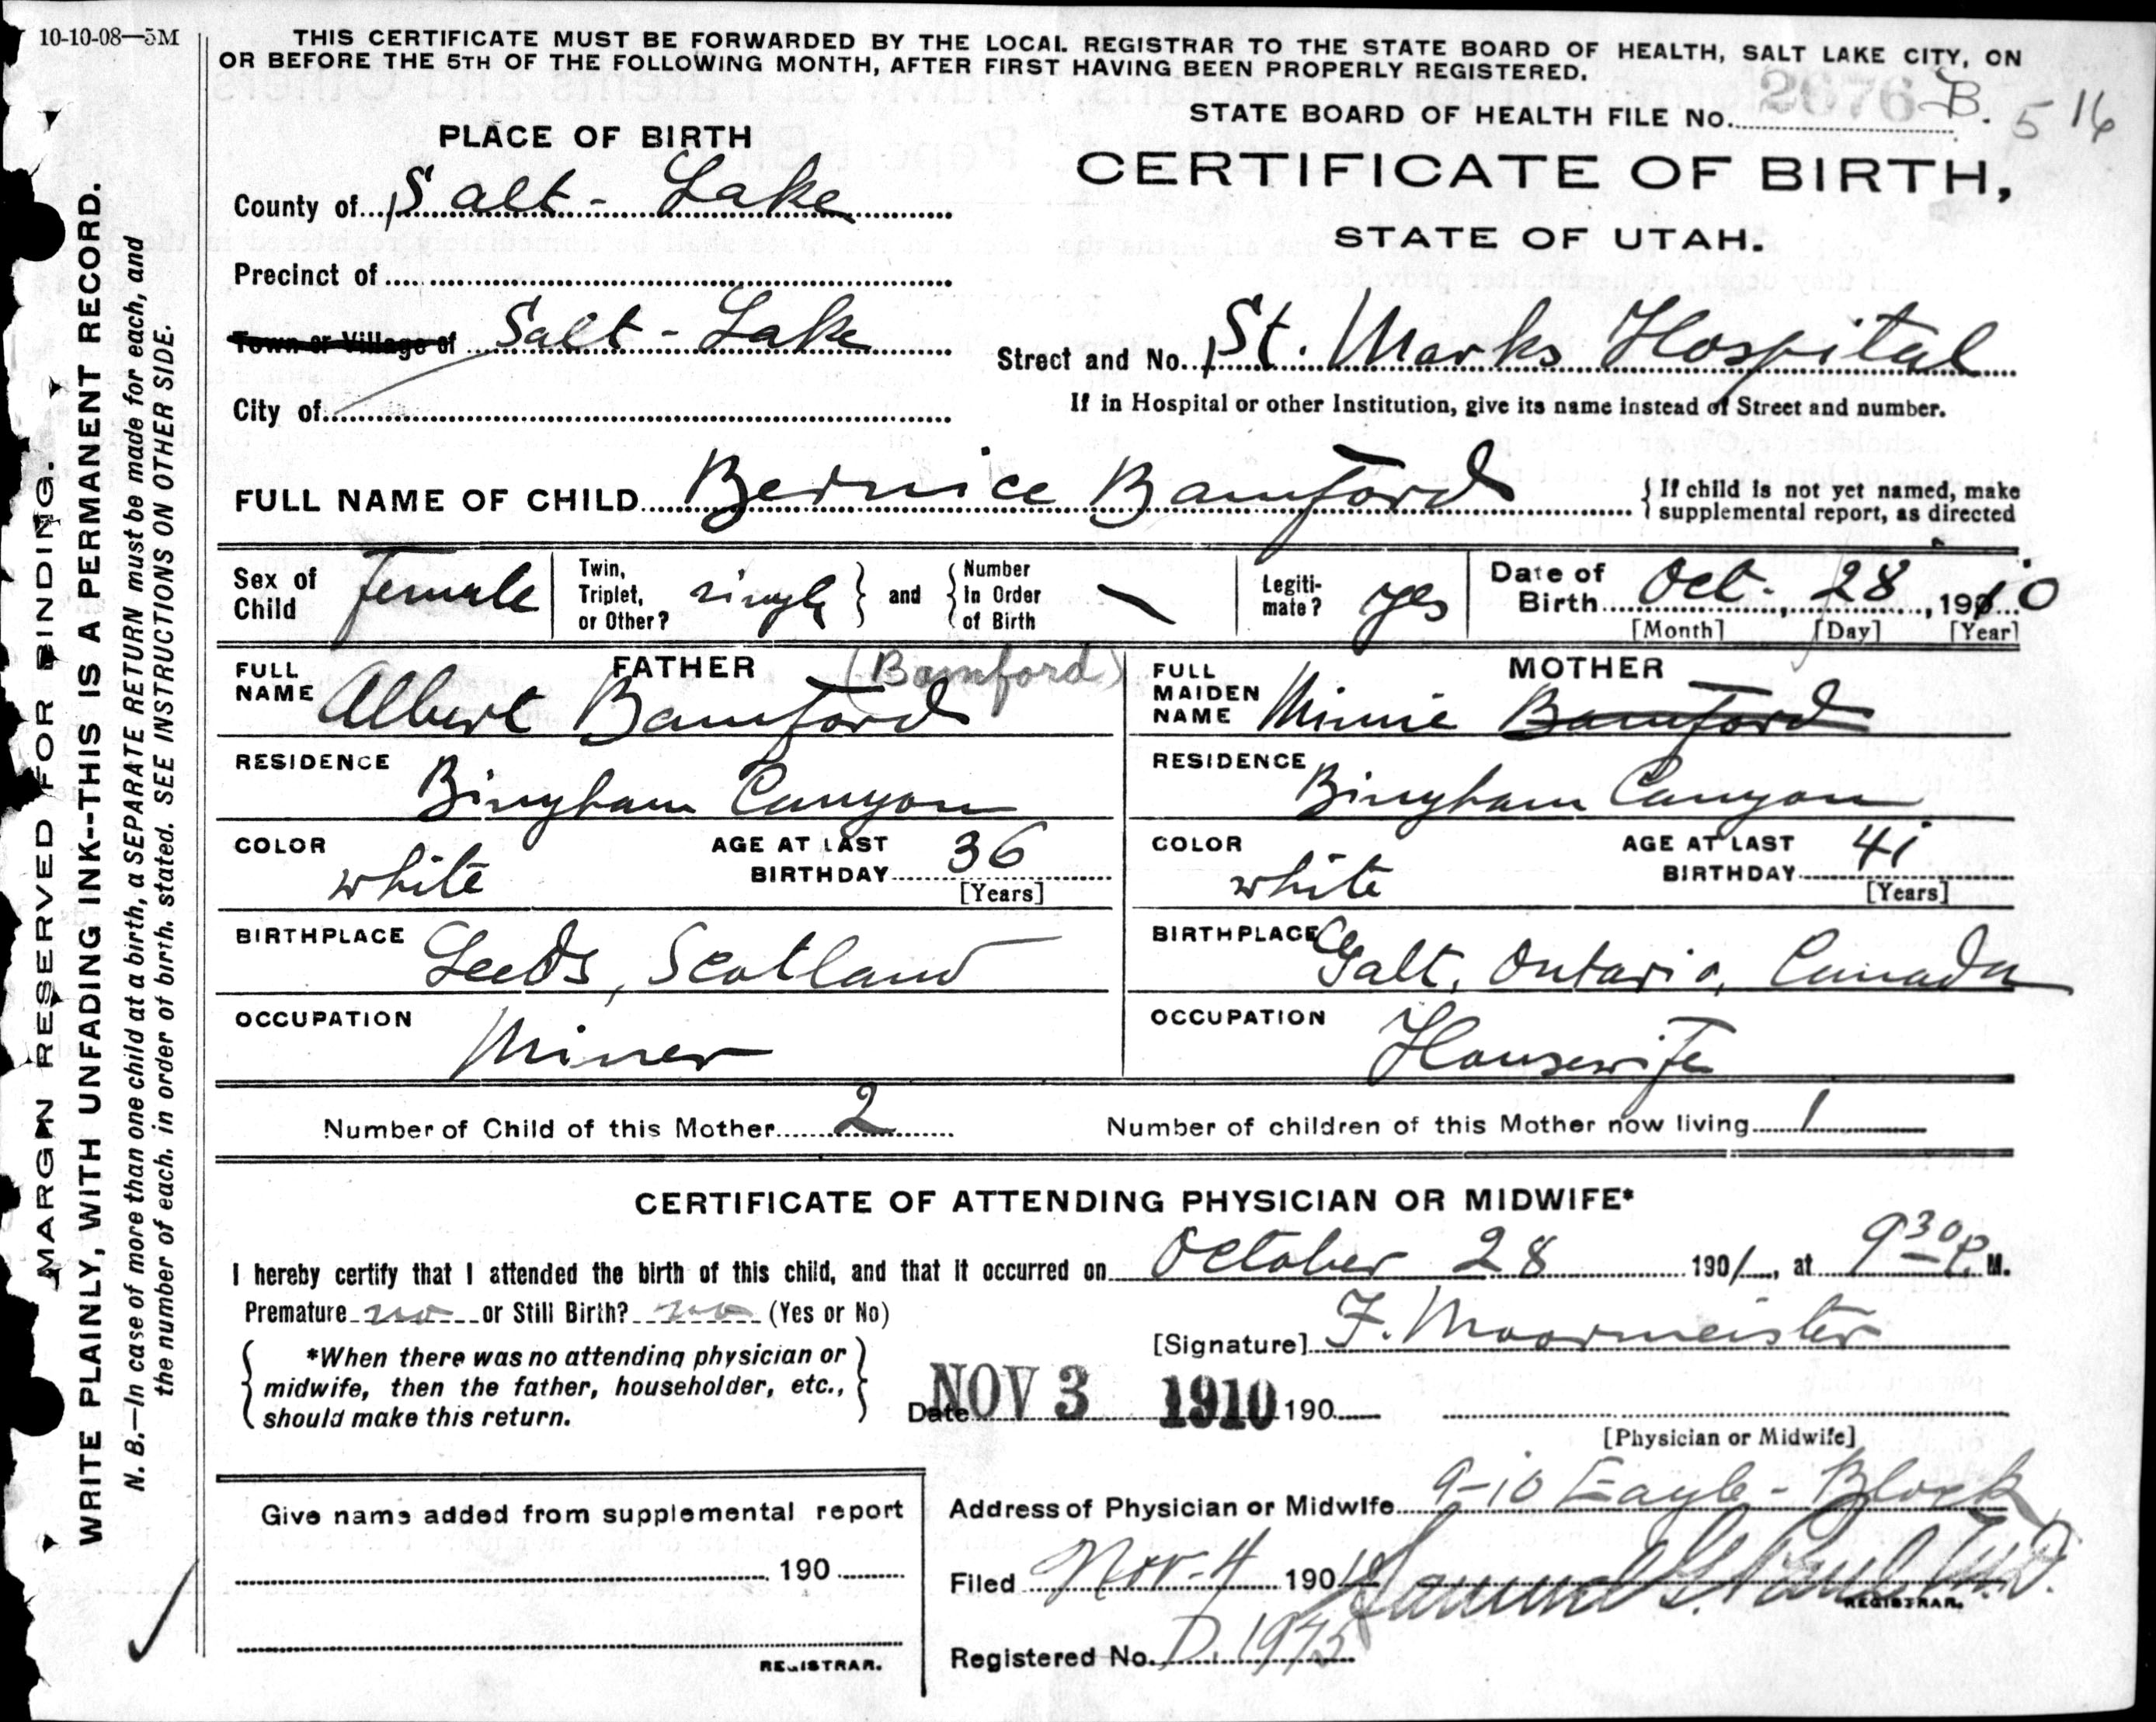 10-10-08—5M
THIS CERTIFICATE MUST BE FORWARDED BY THE LOCAL REGISTRAR TO THE STATE BOARD OF HEALTH, SALT LAKE CITY, ON
OR BEFORE THE 5TH OF THE FOLLOWING MONTH, AFTER FIRST HAVING BEEN PROPERLY REGISTERED.
STATE BOARD OF HEALTH FILE No. 2676 B. 516
PLACE OF BIRTH
CERTIFICATE OF BIRTH,
STATE OF UTAH.
County of Salt-Lake
Precinct of
Town or Village of Salt-Lake
Street and No. St. Marks Hospital
City of
If in Hospital or other Institution, give its name instead of Street and number.
FULL NAME OF CHILD Bernice Bamford
{ If child is not yet named, make
supplemental report, as directed
Sex of Child female
Twin, Triplet, or Other? single } and { Number In Order of Birth —
Legiti-mate? yes
Date of Birth Oct. 28, 1910
[Month] [Day] [Year]
FATHER
FULL NAME Albert Bamford (Bamford)
MOTHER
FULL MAIDEN NAME Minnie Bamford
RESIDENCE Bingham Canyon
RESIDENCE Bingham Canyon
COLOR white
AGE AT LAST BIRTHDAY 36 [Years]
COLOR white
AGE AT LAST BIRTHDAY 41 [Years]
BIRTHPLACE Leeds, Scotland
BIRTHPLACE Galt, Ontario, Canada
OCCUPATION Miner
OCCUPATION Housewife
Number of Child of this Mother 2
Number of children of this Mother now living 1
CERTIFICATE OF ATTENDING PHYSICIAN OR MIDWIFE*
I hereby certify that I attended the birth of this child, and that it occurred on October 28 190/, at 9 30 P. M.
Premature no or Still Birth? no (Yes or No)
[Signature] F. Moormeister
{ *When there was no attending physician or
midwife, then the father, householder, etc.,
should make this return. }
Date NOV 3 1910 190
[Physician or Midwife]
Address of Physician or Midwife 9-10 Eagle-Block
Give name added from supplemental report
190
REGISTRAR.
Filed Nov-4 190 Samuel G. Paul M.D.
REGISTRAR.
Registered No. D. 1975
MARGIN RESERVED FOR BINDING.
WRITE PLAINLY, WITH UNFADING INK--THIS IS A PERMANENT RECORD.
N. B.—In case of more than one child at a birth, a SEPARATE RETURN must be made for each, and
the number of each, in order of birth, stated. SEE INSTRUCTIONS ON OTHER SIDE.